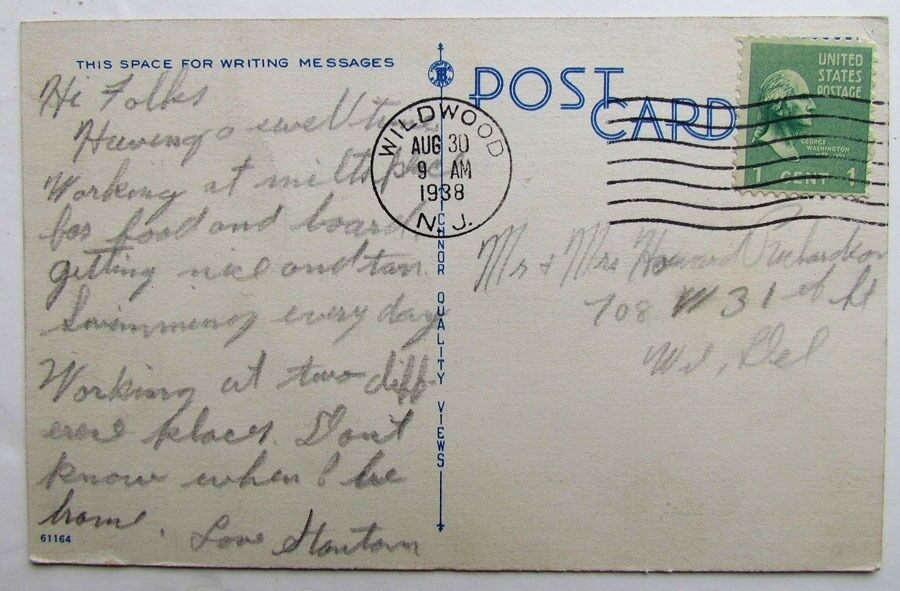 THIS SPACE FOR WRITING MESSAGES
Hi Folks
Having a swell time
Working at
for food and board
getting nice and tan.
Swimming every day
Working at two diff-
erent places. Don't
know when I be
home.
Love
61164
POST CARD
WILDWOOD
AUG 30
9 AM
1938
N.J.
UNITED
STATES
POSTAGE
GEORGE
WASHINGTON
1 CENT 1
Mr & Mrs Howard Richardson
708 W 31 st St
Wil, Del
QUALITY VIEWS